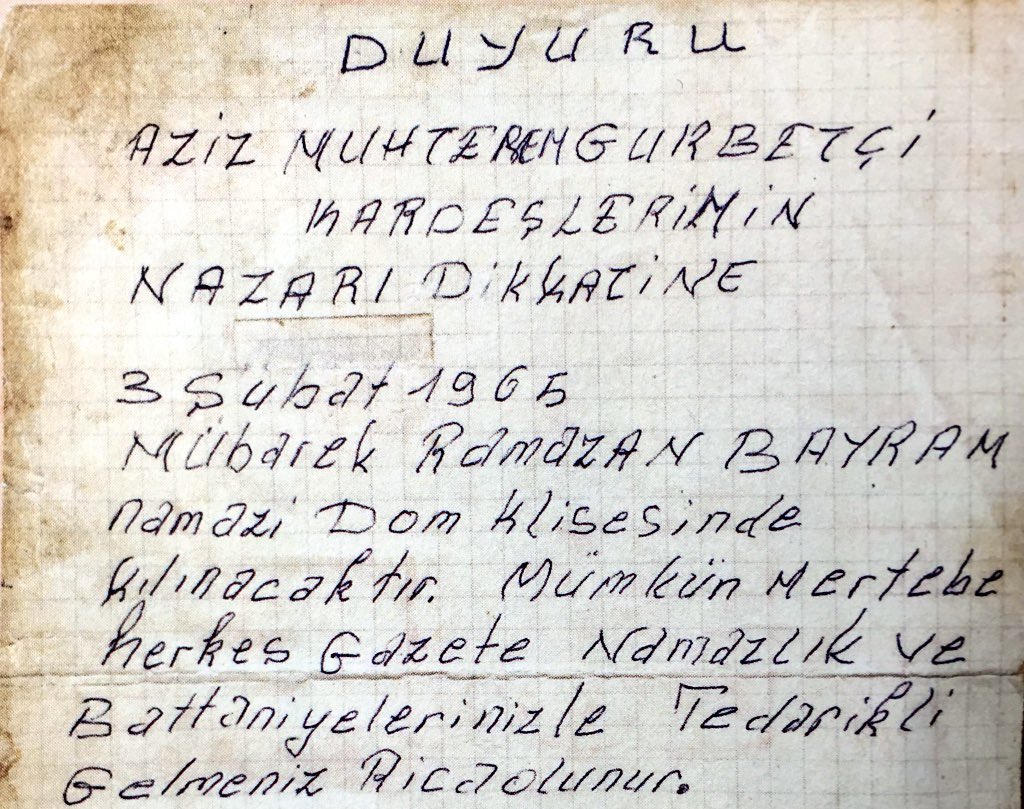 DUYURU
AZİZ MUHTEREM GURBETÇİ
KARDEŞLERİMİN
NAZARI DİKKATİNE
3 Şubat 1965
Mübarek RamazAN BAYRAM
namazi Dom Klisesinde
Kılınacaktır. Mümkün Mertebe
herkes Gazete Namazlık ve
Battaniyelerinizle Tedarikli
Gelmeniz Rica olunur.